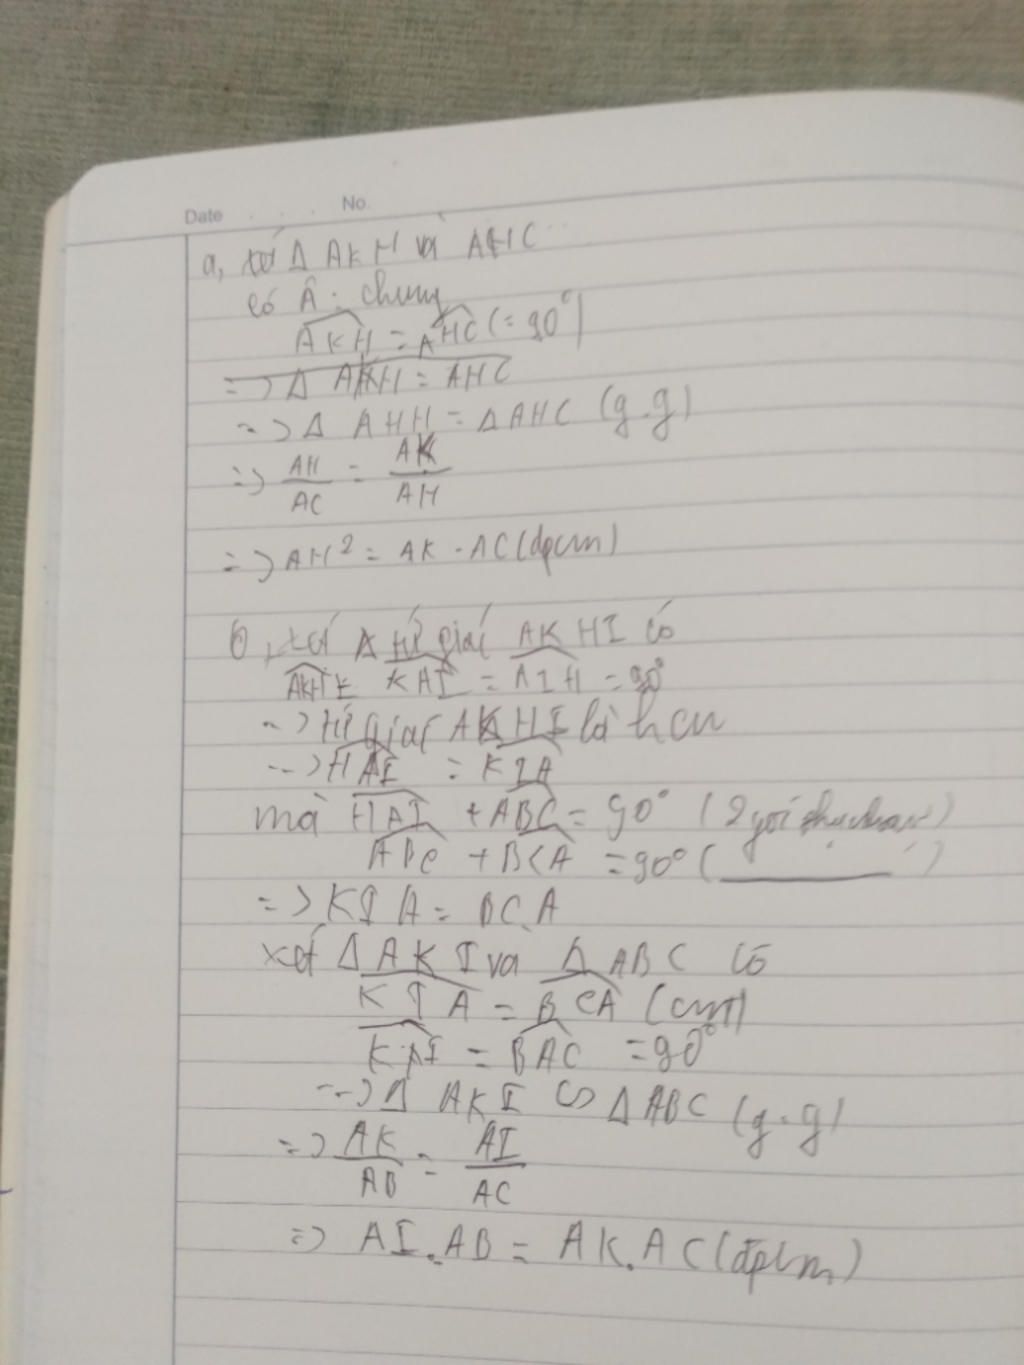 Date No.
a, xét Δ AKH và AHC
có Â: chung
AKH = AHC (= 90°)
=> Δ AKH = AHC
=> Δ AHH = Δ AHC (g.g)
=> AH/AC = AK/AH
=> AH² = AK . AC (đpcm)
b, xét tứ giác AKHI có
AKH = KAI = AIH = 90°
=> tứ giác AKHI là hcn
=> HAI = KIA
mà HAI + ABC = 90° (2 góc
ABC + BCA = 90° ( )
=> KIA = BCA
xét Δ AKI và Δ ABC có
KIA = BCA (cmt)
KAI = BAC = 90°
=> Δ AKI ∽ Δ ABC (g.g)
=> AK/AB = AI/AC
=> AI.AB = AK.AC (đpcm)